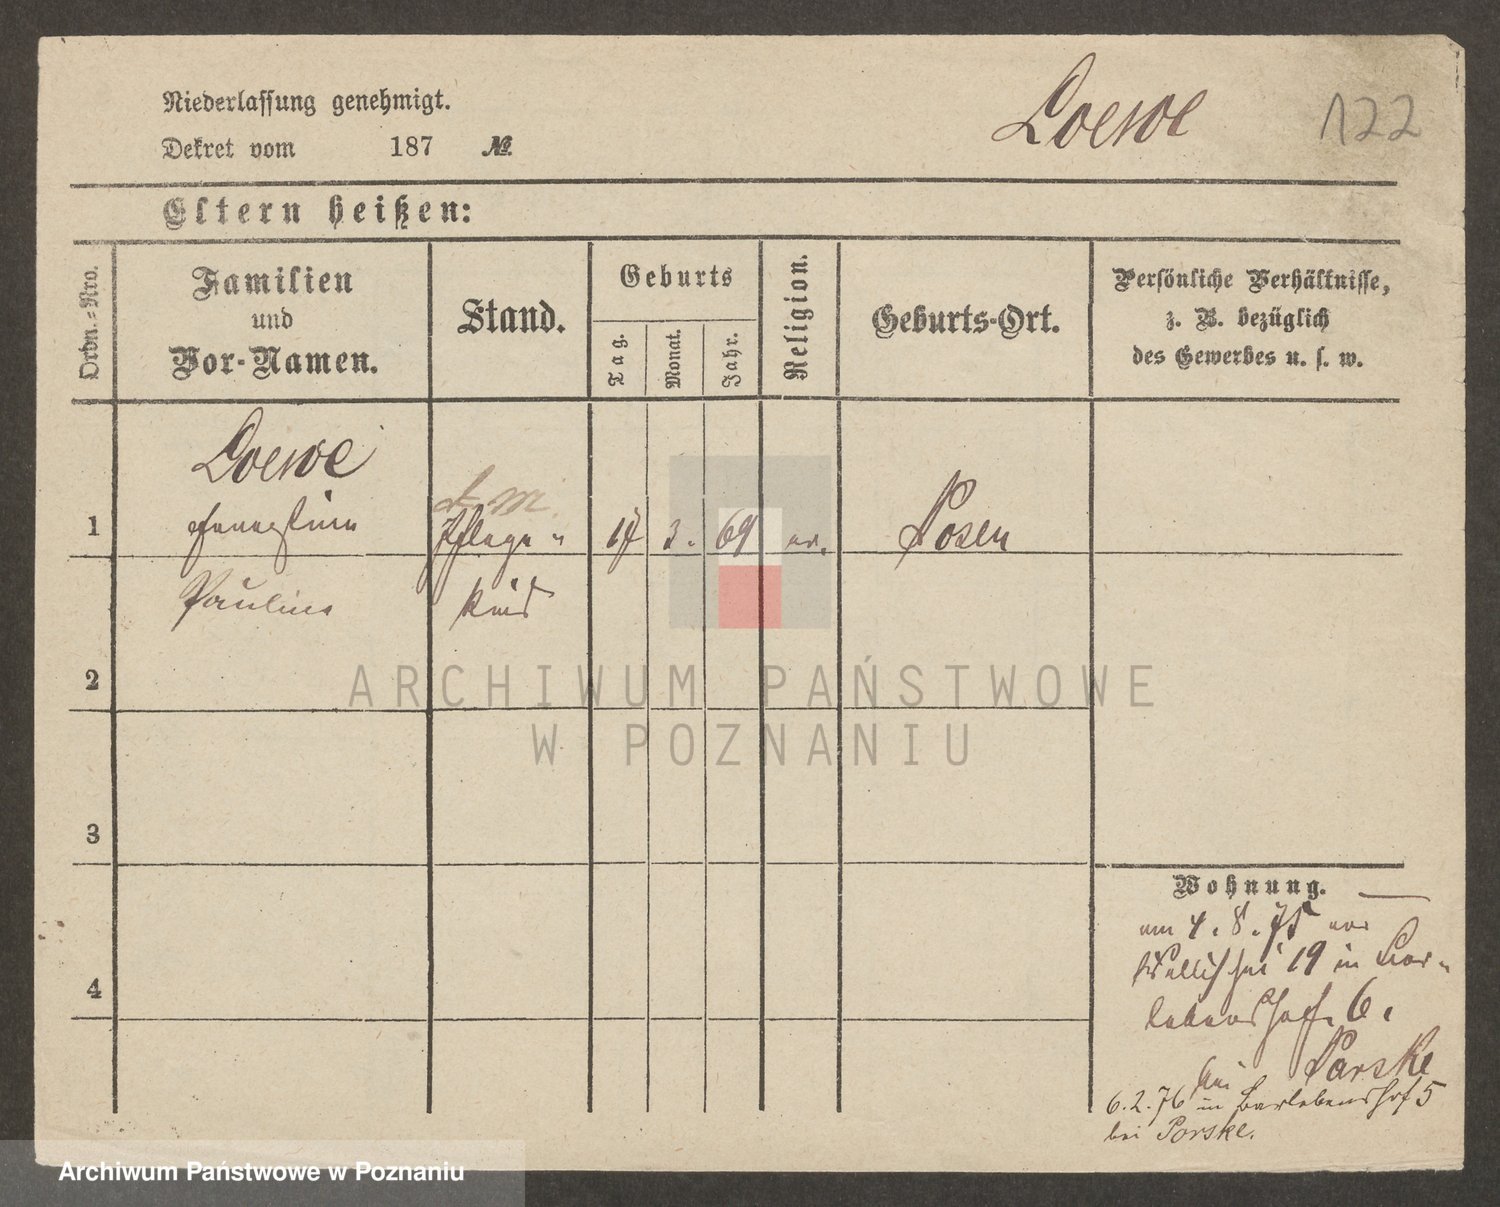 Niederlassung genehmigt.
Dekret vom 187 №
Loewe
122
Eltern heißen:
Ordn.-Nro.
Familien
und
Vor-Namen.
Stand.
Geburts
Tag.
Monat.
Jahr.
Religion.
Geburts-Ort.
Persönliche Verhältnisse,
z. B. bezüglich
des Gewerbes u. s. w.
Loewe
1
Pflege-
17
3.
69
ev.
Posen
Pauline
kind
2
ARCHIWUM PAŃSTWOWE
W POZNANIU
3
Wohnung.
am 4. 8. 75 von
Wallischei 19 in Bar-
lebenshof 6.
bei Parske
4
6. 2. 76 in Barlebenshof 5
bei Porske.
Archiwum Państwowe w Poznaniu